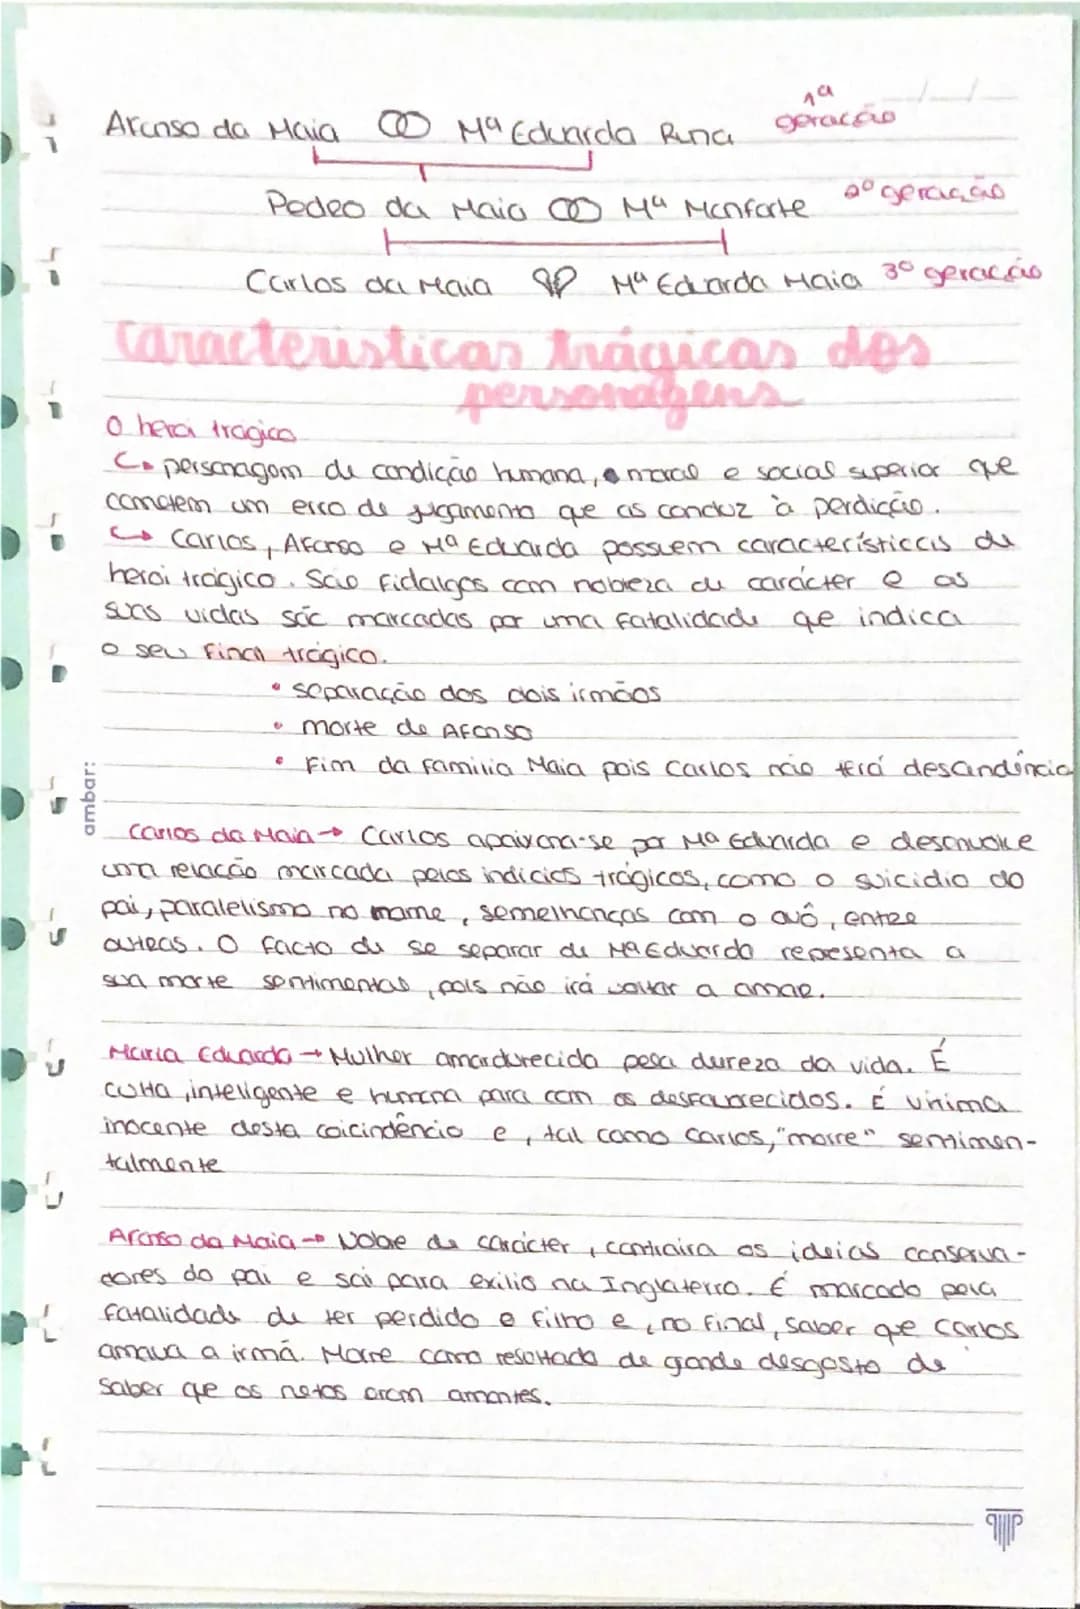 Afonso da Maia ⚭ Mª Eduarda Runa 1ª geração
Pedro da Maia ⚭ Mª Monforte 2º geração
Carlos da Maia Mª Eduarda Maia 3º geração
Caracteristicas trágicas dos
personagens
O heroi trágico
↳ personagem de condição humana, moral e social superior que
cometem um erro de julgamento que as conduz à perdicção.
↳ Carlos, Afonso e Mª Eduarda possuem características de
heroi trágico. São fidalgos com nobreza de carácter e as
suas vidas são marcadas por uma fatalidade que indica
o seu final trágico.
• separação dos dois irmãos
• morte de Afonso
• Fim da familia Maia pois Carlos não terá descendência
ambar:
Carlos da Maia → Carlos apaixona-se por Mª Eduarda e desenvolve
uma relacção marcada pelos indicios trágicos, como o suicidio do
pai, paralelismo no nome, semelhanças com o avô, entre
outros. O facto de se separar de Mª Eduarda representa a
sua morte sentimental, pois não irá voltar a amar.
Maria Eduarda → Mulher amardurecida pela dureza da vida. É
culta, inteligente e humana para com os desfavorecidos. É vitima
inocente desta coicindência e, tal como Carlos, "morre" sentimen-
talmente
Afonso da Maia → Nobre de carácter, contraira os ideias conserva-
dores do pai e sai para exilio na Inglaterra. É marcado pela
fatalidade de ter perdido o filho e, no final, saber que Carlos
amava a irmã. Morre como resultado de grande desgosto de
saber que os netos eram amantes.